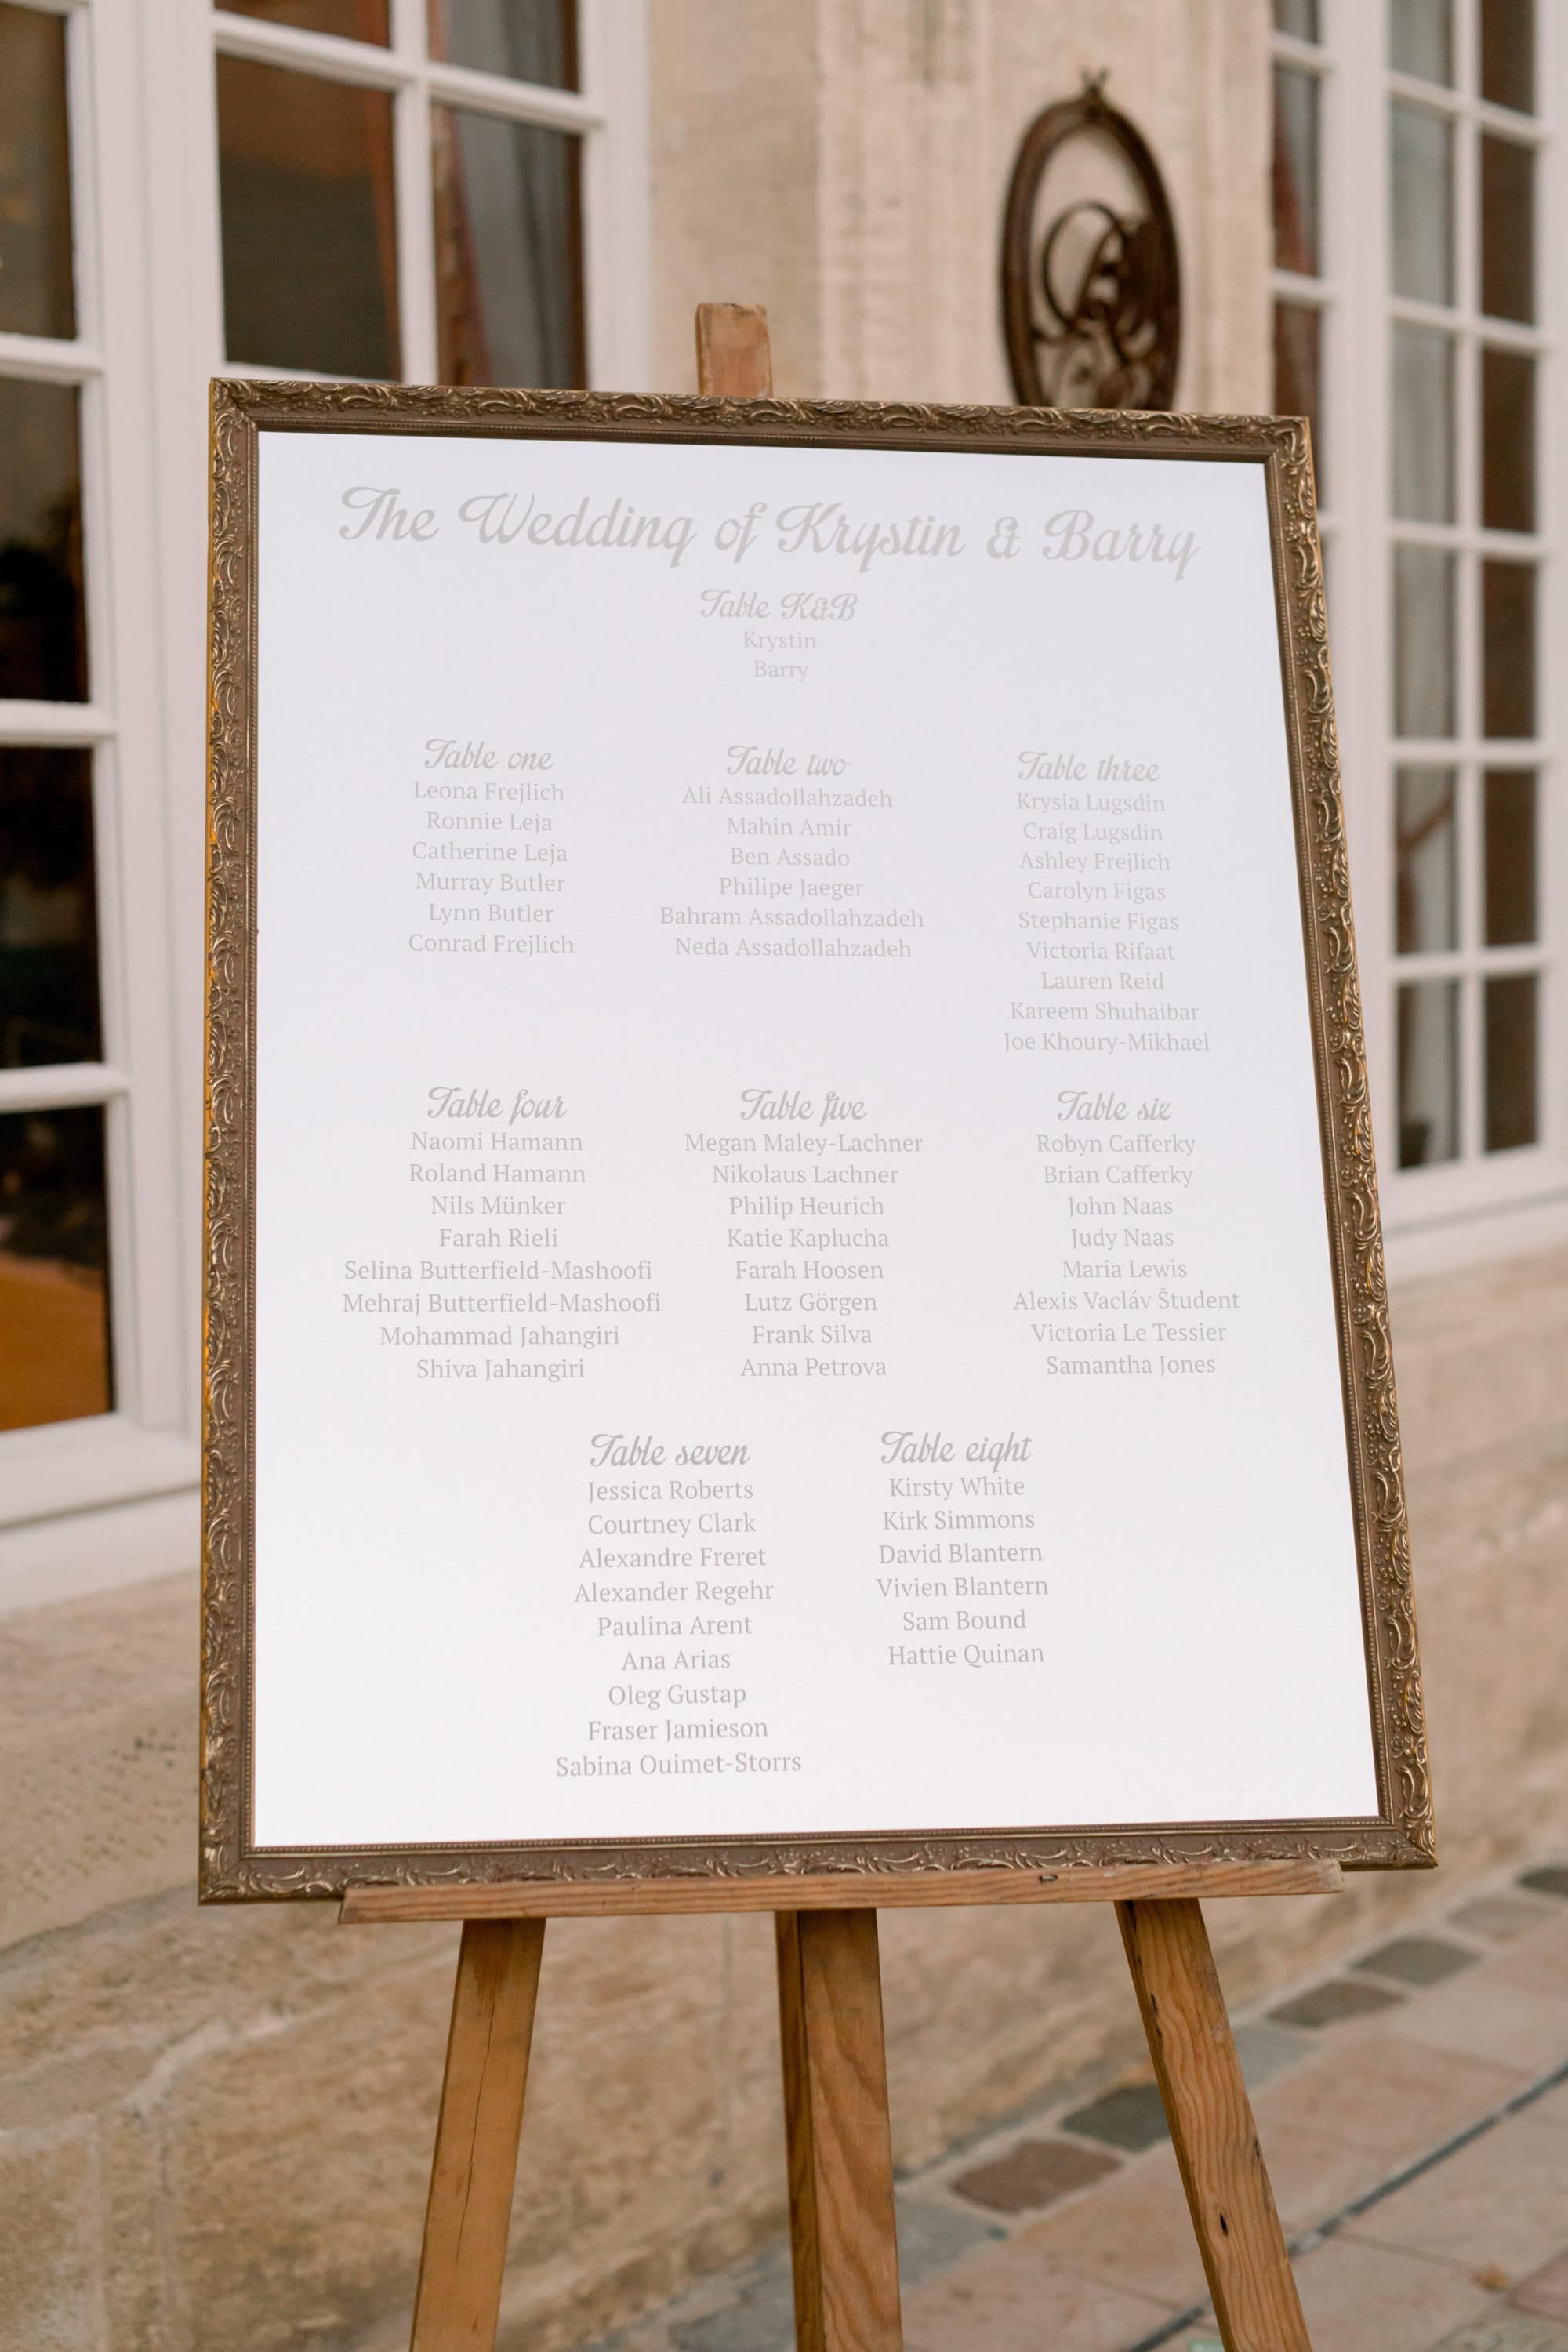 The Wedding of Krystin & Barry
Table K&B
Krystin
Barry
Table one
Leona Frejlich
Ronnie Leja
Catherine Leja
Murray Butler
Lynn Butler
Conrad Frejlich
Table two
Ali Assadollahzadeh
Mahin Amir
Ben Assado
Philipe Jaeger
Bahram Assadollahzadeh
Neda Assadollahzadeh
Table three
Krysia Lugsdin
Craig Lugsdin
Ashley Frejlich
Carolyn Figas
Stephanie Figas
Victoria Rifaat
Lauren Reid
Kareem Shuhaibar
Joe Khoury-Mikhael
Table four
Naomi Hamann
Roland Hamann
Nils Münker
Farah Rieli
Selina Butterfield-Mashoofi
Mehraj Butterfield-Mashoofi
Mohammad Jahangiri
Shiva Jahangiri
Table five
Megan Maley-Lachner
Nikolaus Lachner
Philip Heurich
Katie Kaplucha
Farah Hoosen
Lutz Görgen
Frank Silva
Anna Petrova
Table six
Robyn Cafferky
Brian Cafferky
John Naas
Judy Naas
Maria Lewis
Alexis Vacláv Študent
Victoria Le Tessier
Samantha Jones
Table seven
Jessica Roberts
Courtney Clark
Alexandre Freret
Alexander Regehr
Paulina Arent
Ana Arias
Oleg Gustap
Fraser Jamieson
Sabina Ouimet-Storrs
Table eight
Kirsty White
Kirk Simmons
David Blantern
Vivien Blantern
Sam Bound
Hattie Quinan